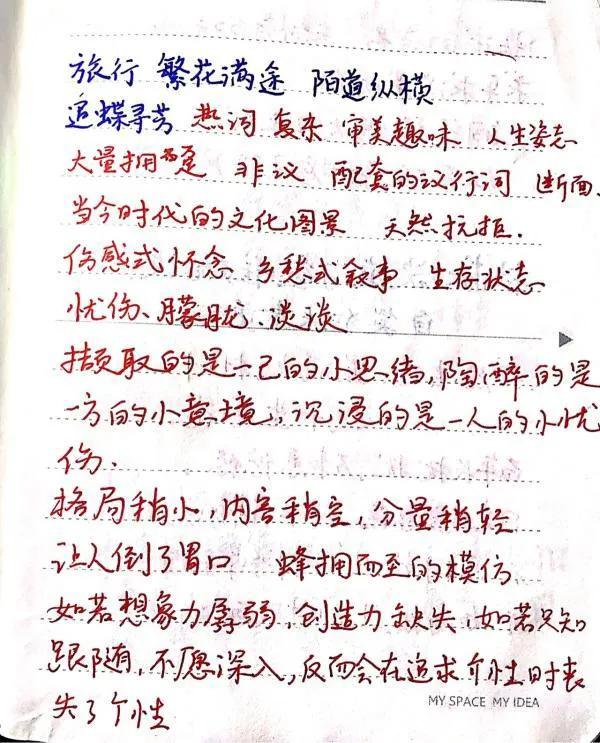 旅行 繁花满途 陌道纵横
追蝶寻芳 热词 复杂 审美趣味 人生姿态
大量拥趸 非议 配套的流行词 断面
当今时代的文化图景 天然抗拒.
伤感式怀念 乡愁式叙事 生存状态
忧伤、朦胧、淡淡
撷取的是一己的小思绪,陶醉的是
一方的小意境,沉浸的是一人的小忧
伤.
格局稍小,内容稍空,分量稍轻
让人倒了胃口 蜂拥而至的模仿
如若想象力孱弱,创造力缺失,如若只知
跟随,不愿深入,反而会在追求个性时丧
失了个性
MY SPACE MY IDEA